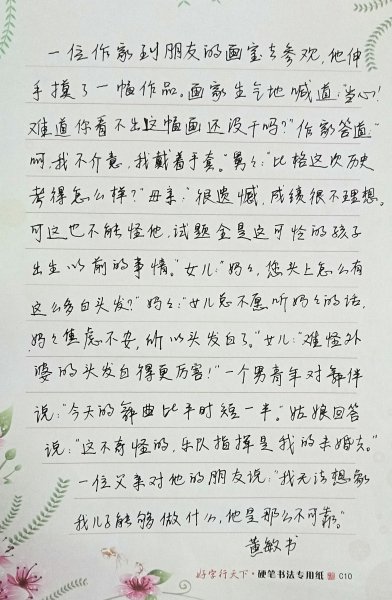 一位作家到朋友的画室去参观,他伸
手摸了一幅作品。画家生气地喊道:"当心!
难道你看不出这幅画还没干吗?"作家答道:
"呵,我不介意,我戴着手套。"舅々:"比格这次历史
考得怎么样?"母亲:"很遗憾,成绩很不理想。
可这也不能怪他,试题全是这可怜的孩子
出生以前的事情。"女儿:"妈々,您头上怎么有
这么多白头发?"妈々:"女儿总不愿听妈々的话,
妈々焦虑不安,所以头发白了。"女儿:"难怪外
婆的头发白得更厉害!"一个男青年对舞伴
说:"今天的舞曲比平时短一半。"姑娘回答
说:"这不奇怪的,乐队指挥是我的未婚夫。"
一位父亲对他的朋友说:"我无法想象
我儿子能够做什么,他是那么不可靠。"
黄敏书
好字行天下·硬笔书法专用纸 C10